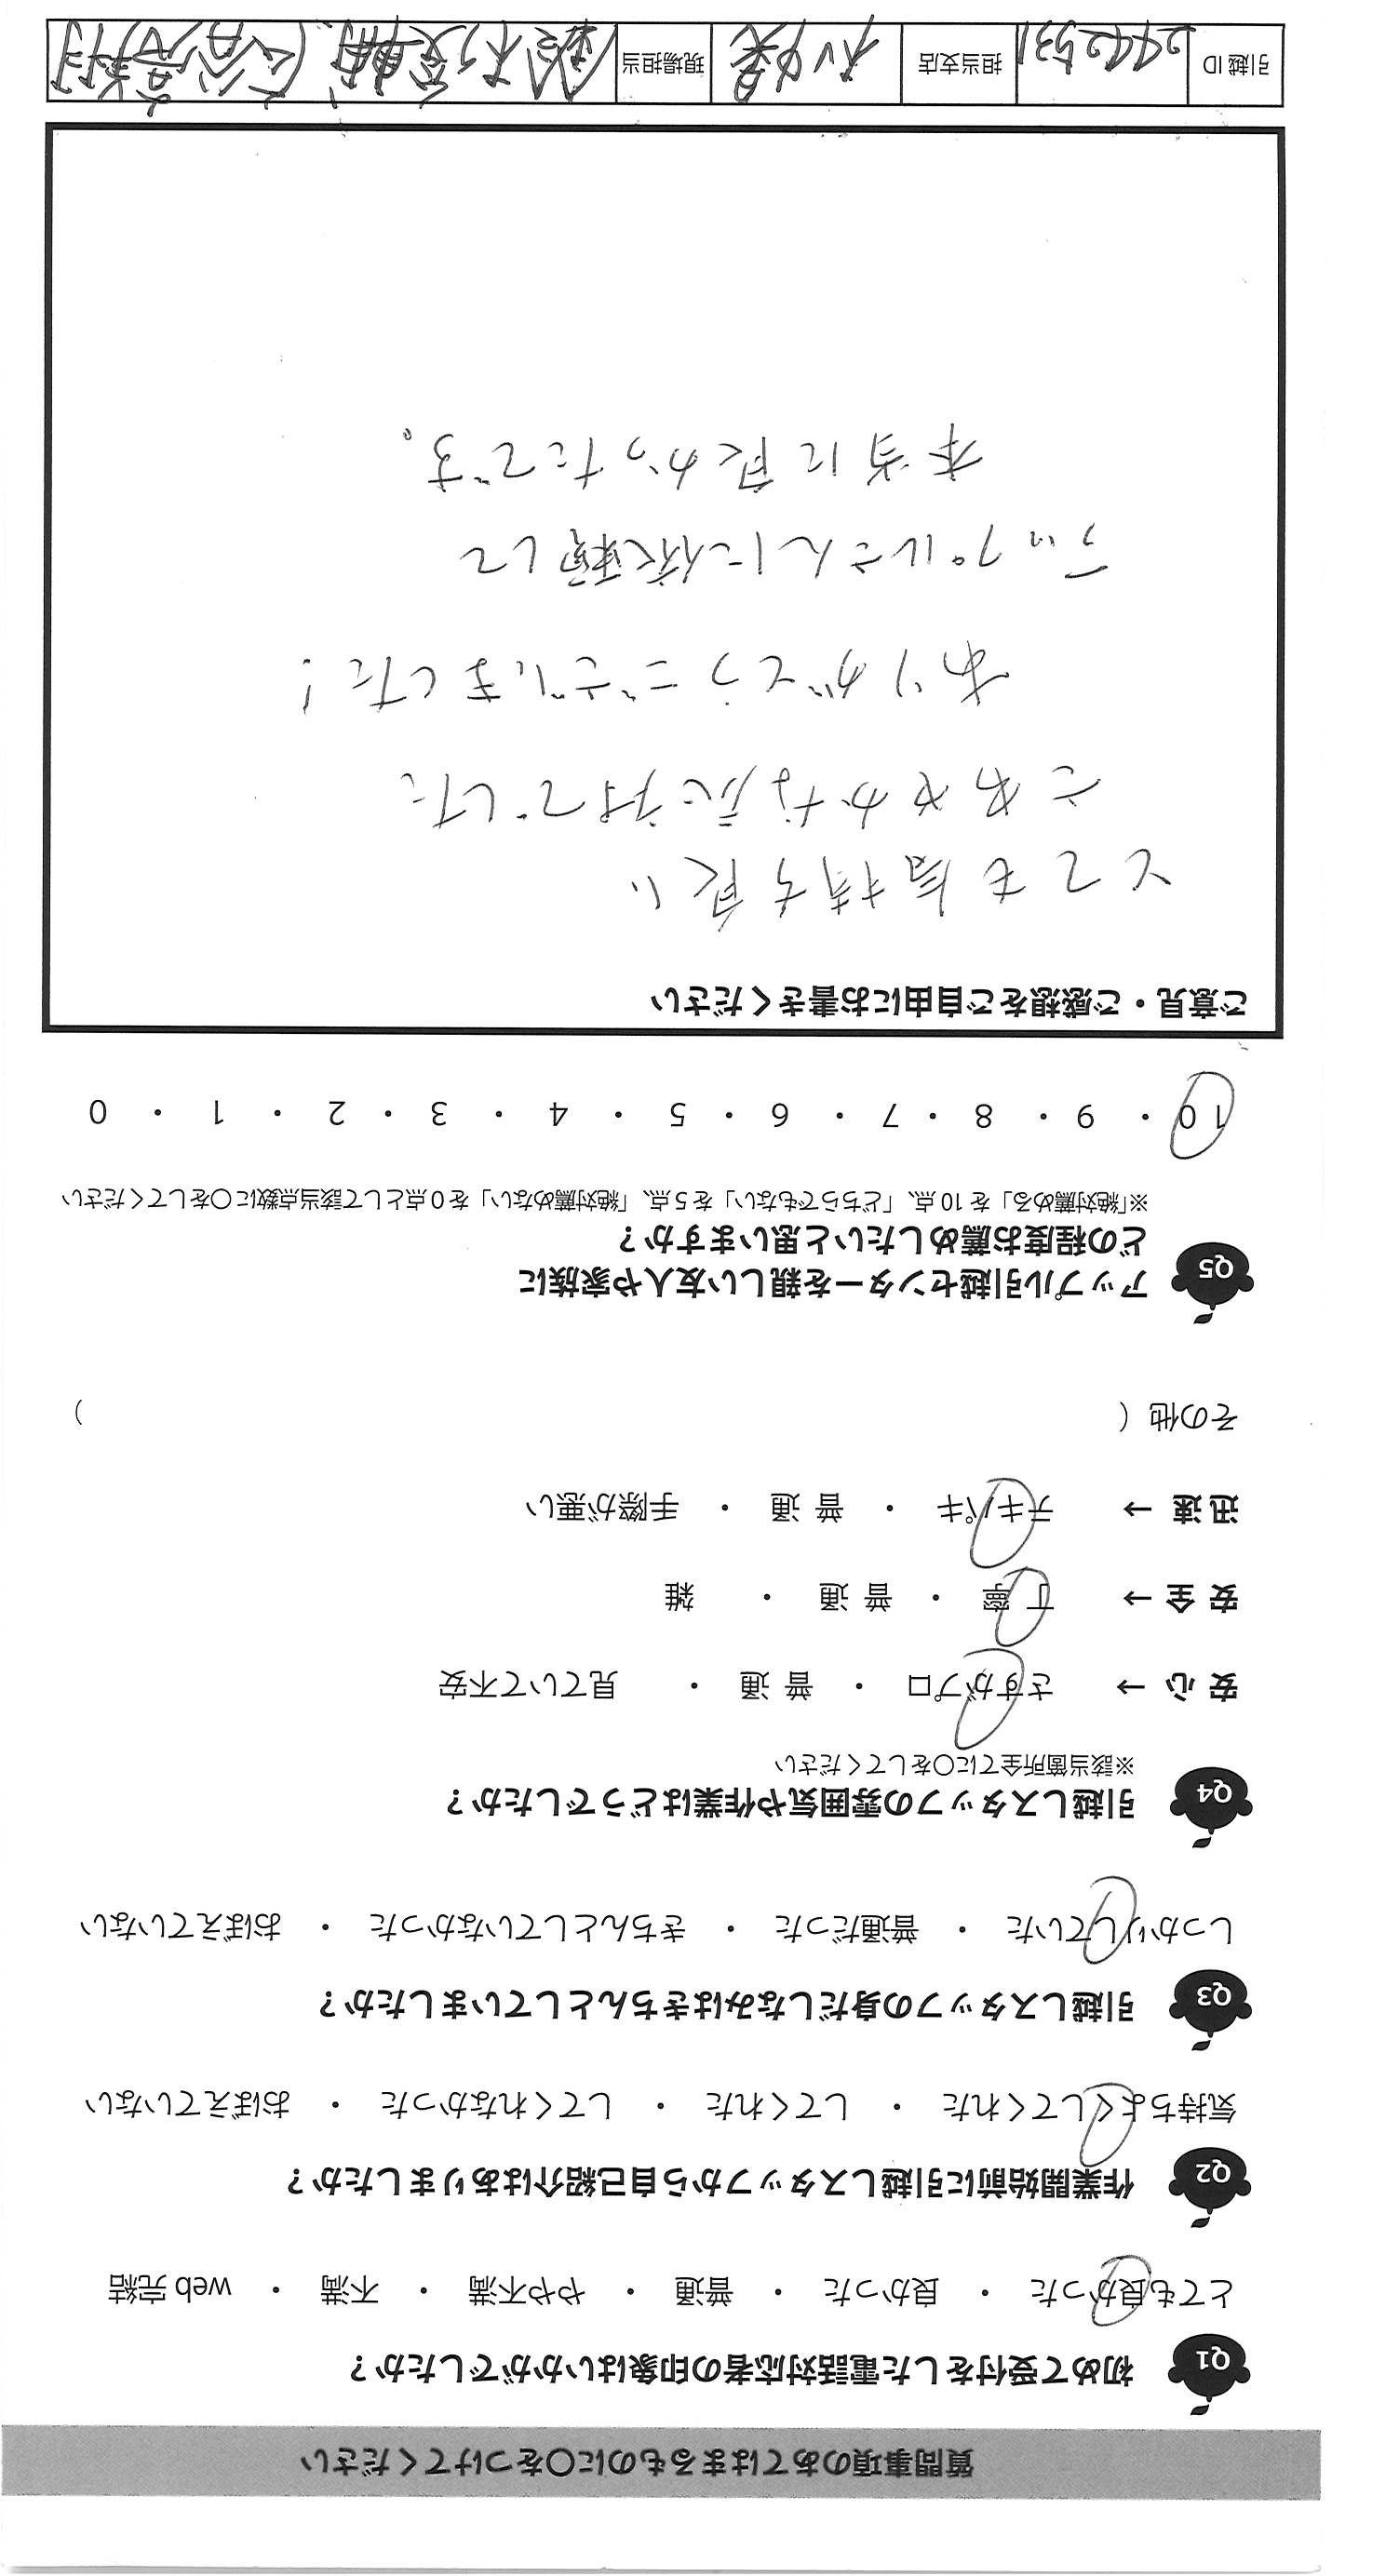 質問事項のあてはまるものに〇をつけてください
Q1 初めて受付をした電話対応者の印象はいかがでしたか？
とても良かった ・ 良かった ・ 普通 ・ やや不満 ・ 不満 ・ web 完結
Q2 作業開始前に引越しスタッフから自己紹介はありましたか？
気持ちよくしてくれた ・ してくれた ・ してくれなかった ・ おぼえていない
Q3 引越しスタッフの身だしなみはきちんとしていましたか？
しっかりしていた ・ 普通だった ・ きちんとしていなかった ・ おぼえていない
Q4 引越しスタッフの雰囲気や作業はどうでしたか？
※該当箇所全てに〇をしてください
安心 → さすがプロ ・ 普通 ・ 見ていて不安
安全 → 丁寧 ・ 普通 ・ 雑
迅速 → テキパキ ・ 普通 ・ 手際が悪い
その他（ ）
Q5 アップル引越センターを親しい友人や家族に
どの程度お薦めしたいと思いますか？
※「絶対薦める」を 10 点、「どちらでもない」を 5 点、「絶対薦めない」を 0 点として該当点数に〇をしてください
10 ・ 9 ・ 8 ・ 7 ・ 6 ・ 5 ・ 4 ・ 3 ・ 2 ・ 1 ・ 0
ご意見・ご感想をご自由にお書きください
とても気持ち良い
さわやかな応対でした
ありがとうございました！
アップルさんに依頼して
本当に良かったです。
引越 ID 2442531 担当支店 現場担当